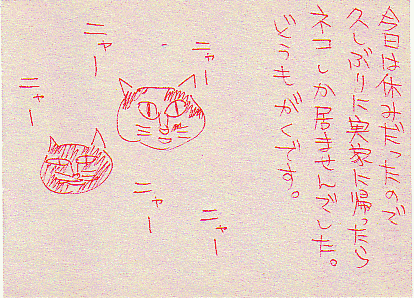 今日は休みだったので
久しぶりに実家に帰ったら
ネコしか居ませんでした。
どうもがくです。
ニャー
ニャー
ニャー
ニャー
ニャー